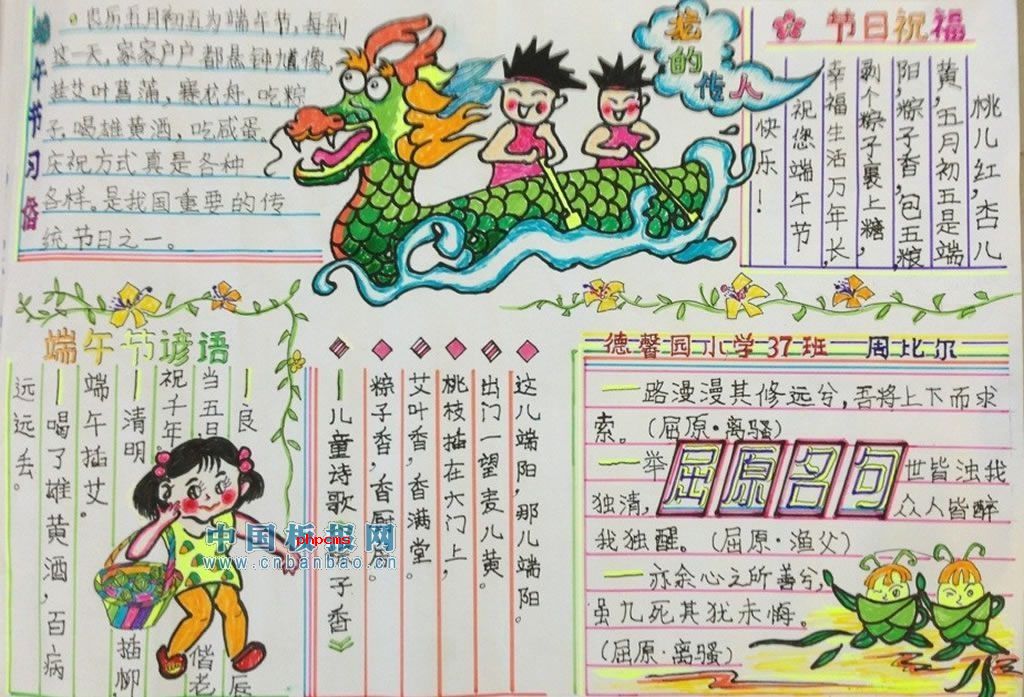 午节习俗
农历五月初五为端午节，每到
这一天，家家户户都悬钟馗像，
挂艾叶菖蒲，赛龙舟，吃粽
子，喝雄黄酒，吃咸蛋。
庆祝方式真是各种
各样。是我国重要的传
统节日之一。
龙的传人
节日祝福
桃儿红，杏儿
黄，五月初五是端
阳，粽子香，包五粮
剥个粽子裹上糖，
幸福生活万年长，
祝您端午节
快乐！
端午节谚语
良辰
当五月
偕老
祝千年
清明插柳
端午插艾。
喝了雄黄酒，百病
远远丢。
这儿端阳，那儿端阳。
出门一望麦儿黄。
桃枝插在大门上，
艾叶香，香满堂。
粽子香，香厨
儿童诗歌 子香》
德馨园小学37班 周比尔
一路漫漫其修远兮，吾将上下而求
索。(屈原·离骚)
屈原名句
一举世皆浊我
独清，众人皆醉
我独醒。(屈原·渔父)
一亦余心之所善兮，
虽九死其犹未悔。
(屈原·离骚)
中国板报网
phpcms
www.cnbanbao.cn